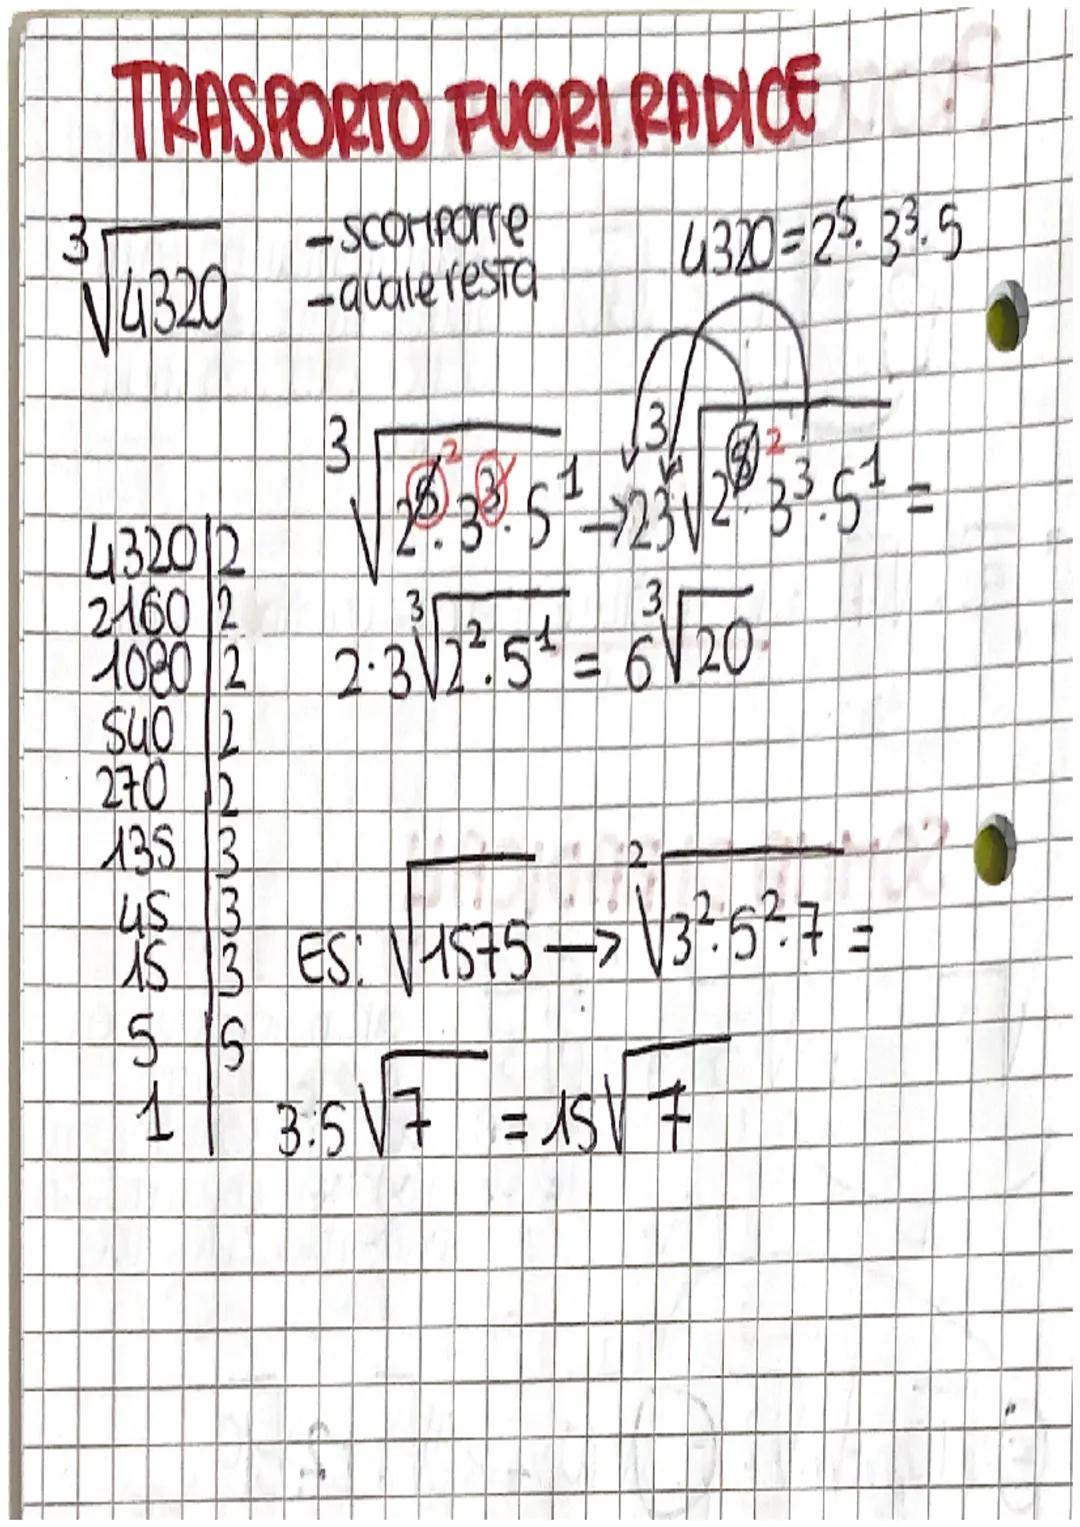 TRASPORTO FUORI RADICE
³√4320
-scomporre
-quale resta
4320=2⁵·3³·5
³√2⁵²·3³·5¹ → 23 ³√2⁵²·3³·5¹ =
2·3 ³√2²·5¹ = 6 ³√20
4320|2
2160|2
1080|2
540|2
270|2
135|3
45|3
15|3
5|5
1|
ES: √1575 → ²√3²·5²·7 =
3·5√7 = 15√7